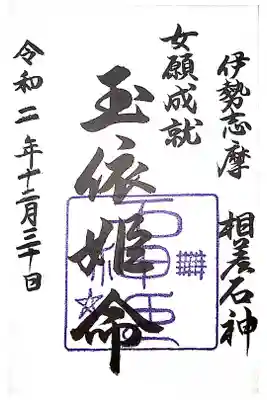 伊勢志摩
相差石神
女願成就
玉依姫命
令和二年十二月三十日